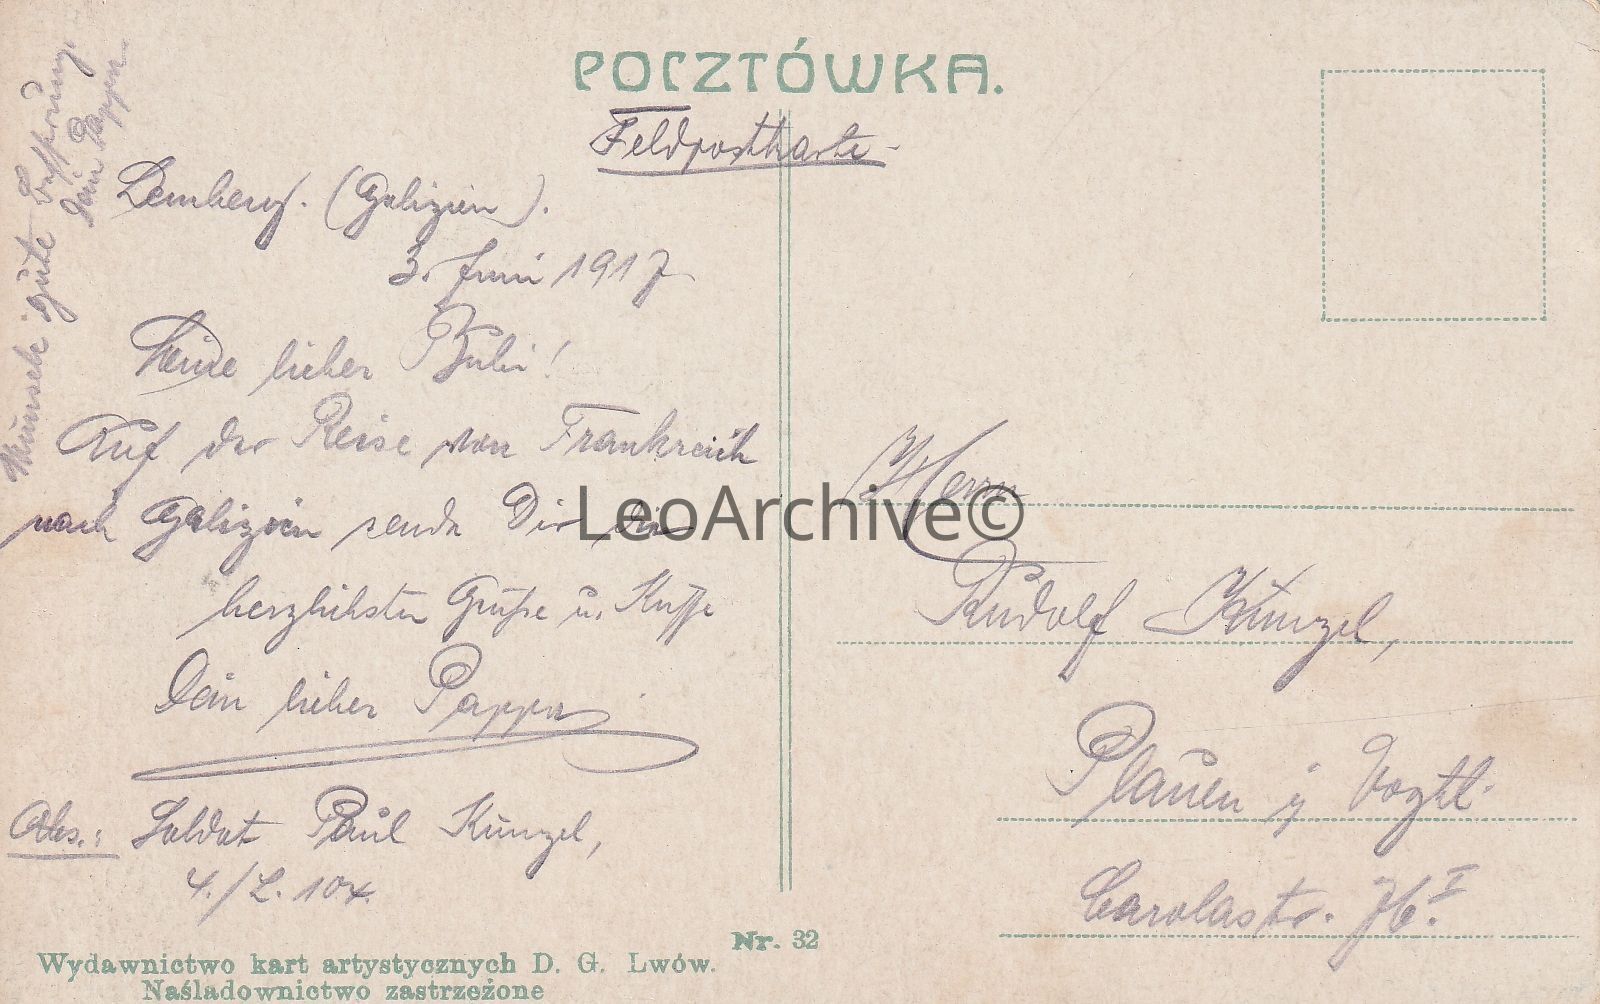 POCZTÓWKA.
Feldpostkarte
Lemberg. (Galizien).
3. Juni 1917
lieber Bubi!
Auf der Reise von Frankreich
nach Galizien sende Dir die
herzlichsten Grüße u. Küsse
Dein lieber Pappa
Abs.: Soldat Paul Künzel,
4./L. 104.
Wünsche gute Besserung.
Dein Pappa
Herrn
Rudolf Künzel,
Plauen i/ Vogtl.
Carolastr. I
LeoArchive©
Nr. 32
Wydawnictwo kart artystycznych D. G. Lwów.
Naśladownictwo zastrzeżone